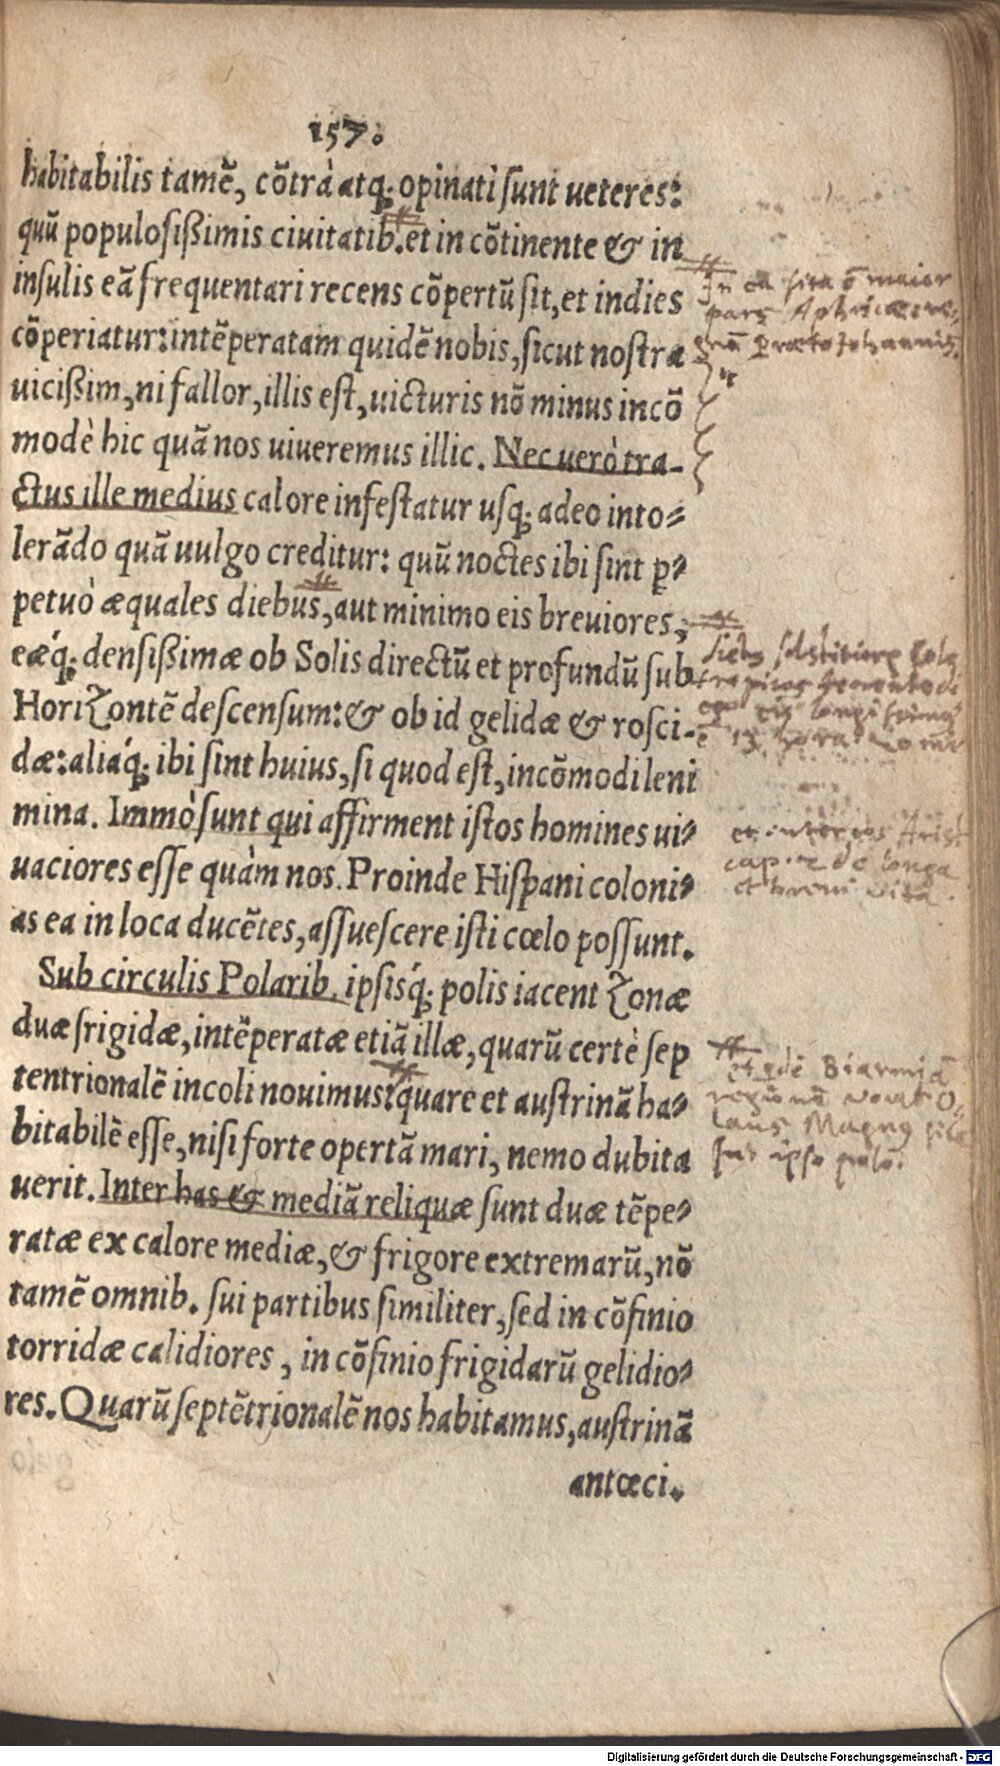 157.
habitabilis tamẽ, cõtrà atq; opinati sunt ueteres:
quũ populosißimis ciuitatib. et in cõtinente & in
insulis eã frequentari recens cõpertũ sit, et indies
cõperiatur: intẽperatam quidẽ nobis, sicut nostra
uicißim, ni fallor, illis est, uicturis nõ minus incõ
modè hic quã nos uiueremus illic. Nec uerò tra-
ctus ille medius calore infestatur usq; adeo into-
lerãdo quã uulgo creditur: quũ noctes ibi sint ꝑ-
petuò æquales diebus, aut minimo eis breuiores,
eæq́; densißimæ ob Solis directũ et profundũ sub
Horizontẽ descensum: & ob id gelidæ & rosci-
dæ: aliaq́; ibi sint huius, si quod est, incõmodi leni
mina. Immò sunt qui affirment istos homines ui-
uaciores esse quàm nos. Proinde Hispani coloni-
as ea in loca ducẽtes, assuescere isti cœlo possunt.
Sub circulis Polarib. ipsisq́; polis iacent Zonæ
duæ frigidæ, intẽperatæ etiã illæ, quarũ certè sep
tentrionalẽ incoli nouimus: quare et austrinã ha-
bitabilẽ esse, nisi forte opertã mari, nemo dubita
uerit. Inter has & mediã reliquæ sunt duæ tẽpe-
ratæ ex calore mediæ, & frigore extremarũ, nõ
tamẽ omnib. sui partibus similiter, sed in cõfinio
torridæ calidiores, in cõfinio frigidarũ gelidio-
res. Quarũ septẽtrionalẽ nos habitamus, austrinã
antœci.
In ea sita ẽ maior
pars Aphricæ
Johannis
cap. 2 de longa
et breui vita.
Biarmiã
regionẽ vocat O-
laus Magnus
sub ipso polo.
Digitalisierung gefördert durch die Deutsche Forschungsgemeinschaft - DFG